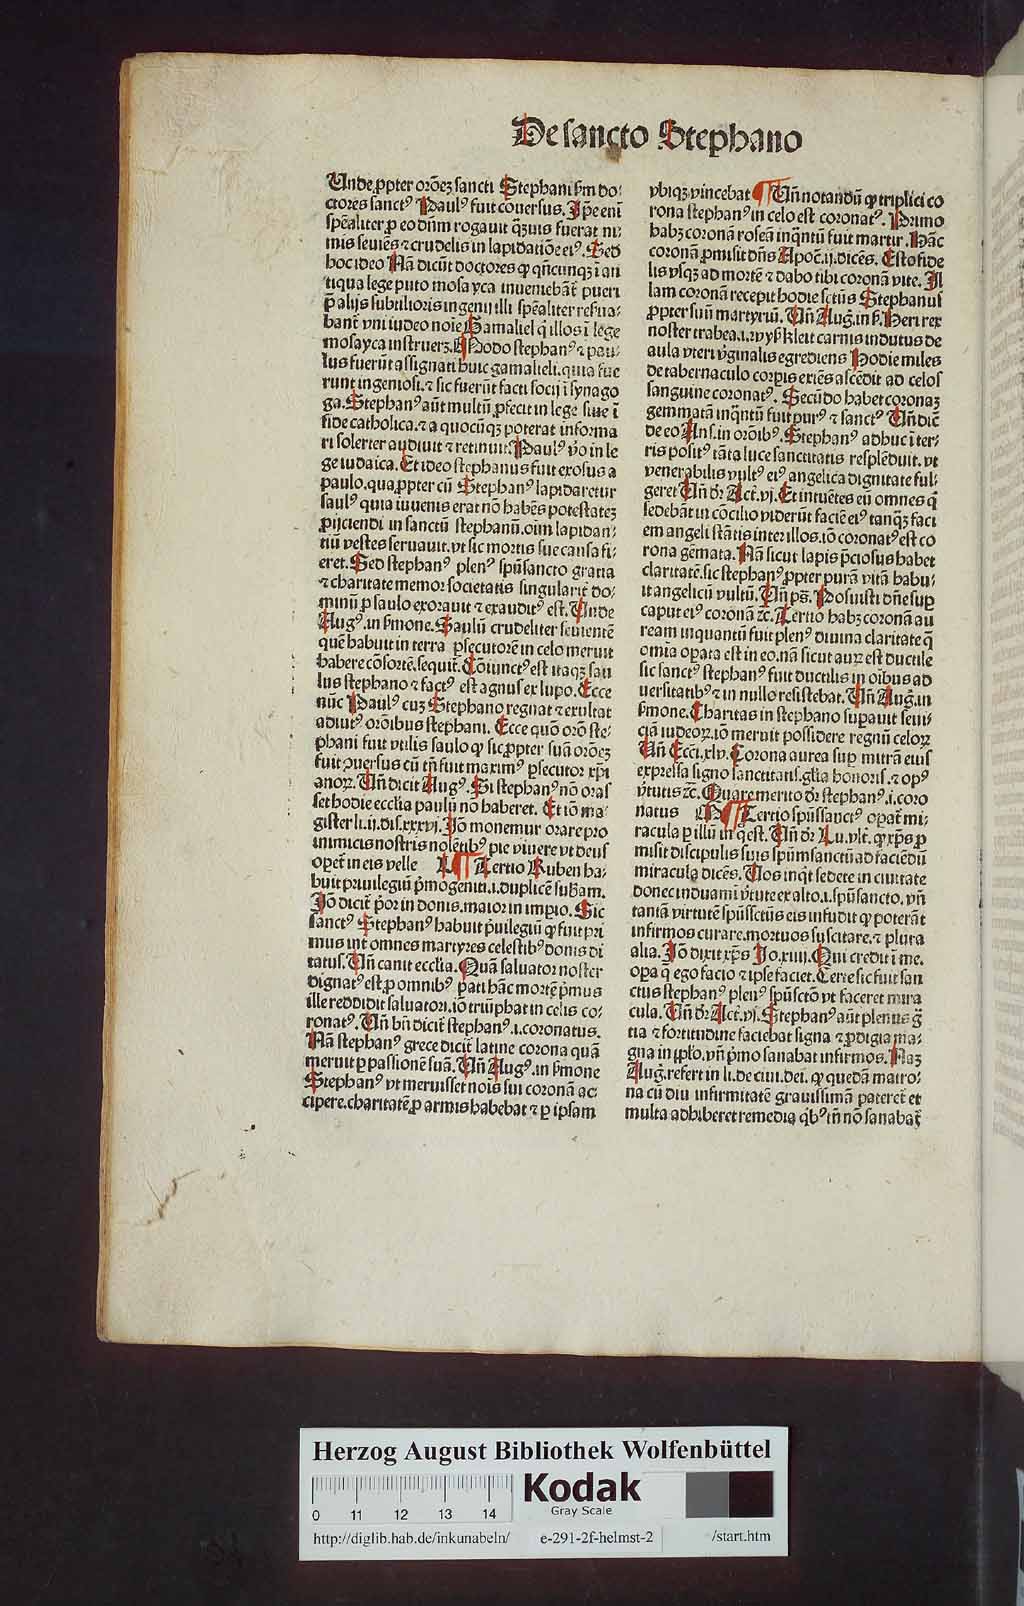 De sancto Stephano
Unde ꝓpter orōeʒ sancti Stephani ẜm do⸗
ctores sanctꝰ Paulꝰ fuit cōuersus. Ip̄e enī
spēaliter ꝓ eo dn̄m rogauit qʒuis fuerat ni⸗
mis seuiēs ⁊ crudelis in lapidatiōe eiꝰ. Sed
hoc ideo Nā dicūt doctores ꝙ qn̄cunqʒ ī an
tiqua lege puto mosayca inueniebāt̄ pueri
p̄ alijs subtilioris ingenij illi spēaliter reẜua⸗
bant̄ vni iudeo noīe Gamaliel q̄ illos ī lege
mosayca instrueʒ. Modo stephanꝰ ⁊ pau⸗
lus fuerūt assignati huic gamalieli. quia fue
runt ingeniosi. ⁊ sic fuerūt facti socij ī synago
ga. Stephanꝰ aūt multū ꝓfecit in lege siue ī
fide catholica. ⁊ a quocūqʒ poterat informa
ri solerter audiuit ⁊ retinuit. Paulꝰ v̄o in le
ge iudaica. Et ideo stephanus fuit exosus a
paulo. qua ꝓpter cū Stephanꝰ lapidaretur
saulꝰ quia iuuenis erat nō habēs potestateʒ
ꝓijciendi in sanctū stephanū. oīm lapidan⸗
tiū vestes seruauit. vt sic mortis sue causa fi⸗
eret. Sed stephanꝰ plenꝰ spūsancto gratia
⁊ charitate memor societatis singularit̄ do⸗
minū ꝓ saulo exorauit ⁊ exauditꝰ est. Unde
Augꝰ. in ẜmone. Saulū crudeliter seuientē
quē habuit in terra ꝑsecutorē in celo meruit
habere cōsortē. sequit̄. Cōiunctꝰ est itaqʒ sau
lus stephano ⁊ factꝰ est agnus ex lupo. Ecce
nūc Paulꝰ cuʒ Stephano regnat ⁊ exultat
adiutꝰ orōnibus stephani. Ecce quō orō ste⸗
phani fuit vtilis saulo ꝙ sic ꝓpter suā orōeʒ
fuit ꝯuersus cū tn̄ fuit maximꝰ ꝑsecutor xp̄i
anoꝝ. Un̄ dicit Augꝰ. Si stephanꝰ nō oras
set hodie ecclīa paulū nō haberet. Et iō ma⸗
gister li. ij. dis. xxxvj. Iō monemur orare pro
inimicis nostris nolētibꝰ pie viuere vt deus
operet̄ in eis velle L ¶ Tertio Ruben ha⸗
buit priuilegiū p̄mogeniti. i. duplicē subam.
Iō dicit̄ p̄or in donis. maior in imꝑio. Sic
sanctꝰ Stephanꝰ habuit p̄uilegiū ꝙ fuit pri
mus int̄ omnes martyres celestibꝰ donis di
tatus. Un̄ canit ecclīa. Quā saluator noster
dignatꝰ est. ꝓ omnibꝰ pati hāc mortē p̄mus
ille reddidit saluatori. iō triūphat in celis co⸗
ronatꝰ. Un̄ bn̄ dicit̄ stephanꝰ. i. coronatus.
Nā stephanꝰ grece dicit̄ latine corona quā
meruit ꝑ passionē suā. Un̄ Augꝰ. in ẜmone
Stephanꝰ vt meruisset nois sui coronā ac⸗
cipere. charitatē ꝓ armis habebat ⁊ ꝑ ipsam
vbiqʒ vincebat ¶ Un̄ notandū ꝙ triplici co
rona stephanꝰ in celo est coronatꝰ. Primo
habʒ coronā roseā inq̄ntū fuit martir. Hāc
coronā ꝓmisit dn̄s Apoc̄. ij. dicēs. Esto fide
lis vsqʒ ad mortē ⁊ dabo tibi coronā vite. Il
lam coronā recepit hodie sctūs Stephanus
ꝓpter suū martyriū. Un̄ Auḡ. in ẜ. Heri rex
noster trabea. i. wyß kleit carnis indutus de
aula vteri v̓ginalis egrediens Hodie miles
de tabernaculo corꝑis exiēs ascēdit ad celos
sanguine coronatꝰ. Secūdo habet coronaʒ
gemmatā inq̄ntū fuit purꝰ ⁊ sanctꝰ Un̄ dic̄
de eo Ans. in orōibꝰ. Stephanꝰ adhuc ī ter⸗
ris positꝰ tāta luce sanctitatis resplēduit. vt
venerabilis vultꝰ eiꝰ angelica dignitate ful⸗
geret Un̄ dr̄ Act̄. vj. Et intuētes eū omnes q̄
sedebāt in cōcilio viderūt faciē eiꝰ tanqʒ faci
em angeli stātis inter illos. iō coronatꝰ est co
rona gēmata. Nā sicut lapis p̄ciosus habet
claritatē. sic stephanꝰ ꝓpter purā vitā habu⸗
it angelicū vultū. Un̄ pꝰs. Posuisti dn̄e suꝑ
caput eiꝰ coronā ⁊c̄. Tertio habʒ coronā au
ream inquantū fuit plenꝰ diuina claritate q̄
omīa oꝑata est in eo. nā sicut auꝝ est ductile
sic sanctꝰ stephanꝰ fuit ductilis in oībus ad
uersitatibꝰ ⁊ in nullo resistebat. Un̄ Auḡ. in
ẜmone. Charitas in stephano suꝑauit seui⸗
ciā iudeoꝝ. iō meruit possidere regnū celoꝝ
Un̄ Ecc̄i. xlv. Corona aurea suꝑ mitrā eius
expressa signo sanctitatis. glīa honoris. ⁊ opꝰ
v̓tutis ⁊c̄. Quare merito dr̄ stephanꝰ. i. coro
natus M ¶ Tertio spūssanctꝰ oꝑat̄ mi⸗
racula ꝑ illū in q̄ est. Un̄ dr̄ Lu. vlt̄. ꝙ xp̄s ꝓ
misit discipulis suis spūmsanctū ad faciēdū
miracula dicēs. Uos inq̄t sedete in ciuitate
donec induamī v̓tute ex alto. i. spūsancto. vn̄
tantā virtutē spūsctūs eis infudit ꝙ poterāt
infirmos curare. mortuos suscitare. ⁊ plura
alia. Iō dixit xp̄s Jo. xiiij. Qui credit ī me.
opa q̄ ego facio ⁊ ipse faciet. Certe sic fuit san
ctus stephanꝰ plenꝰ spūsctō vt faceret mira
cula. Un̄ dr̄ Act̄. vj. Stephanꝰ aūt plenus ḡ
tia ⁊ fortitudine faciebat signa ⁊ ꝓdigia ma⸗
gna in pplo. vn̄ p̄mo sanabat infirmos. Naʒ
Auḡ. refert in li. de ciui. dei. ꝙ quedā matro⸗
na cū diu infirmitatē grauissimā pateret̄ et
multa adhiberet remedia qbꝰ tn̄ nō sanabat̄
Herzog August Bibliothek Wolfenbüttel
Kodak
Gray Scale
0 11 12 13 14
http://diglib.hab.de/inkunabeln/ e-291-2f-helmst-2 /start.htm